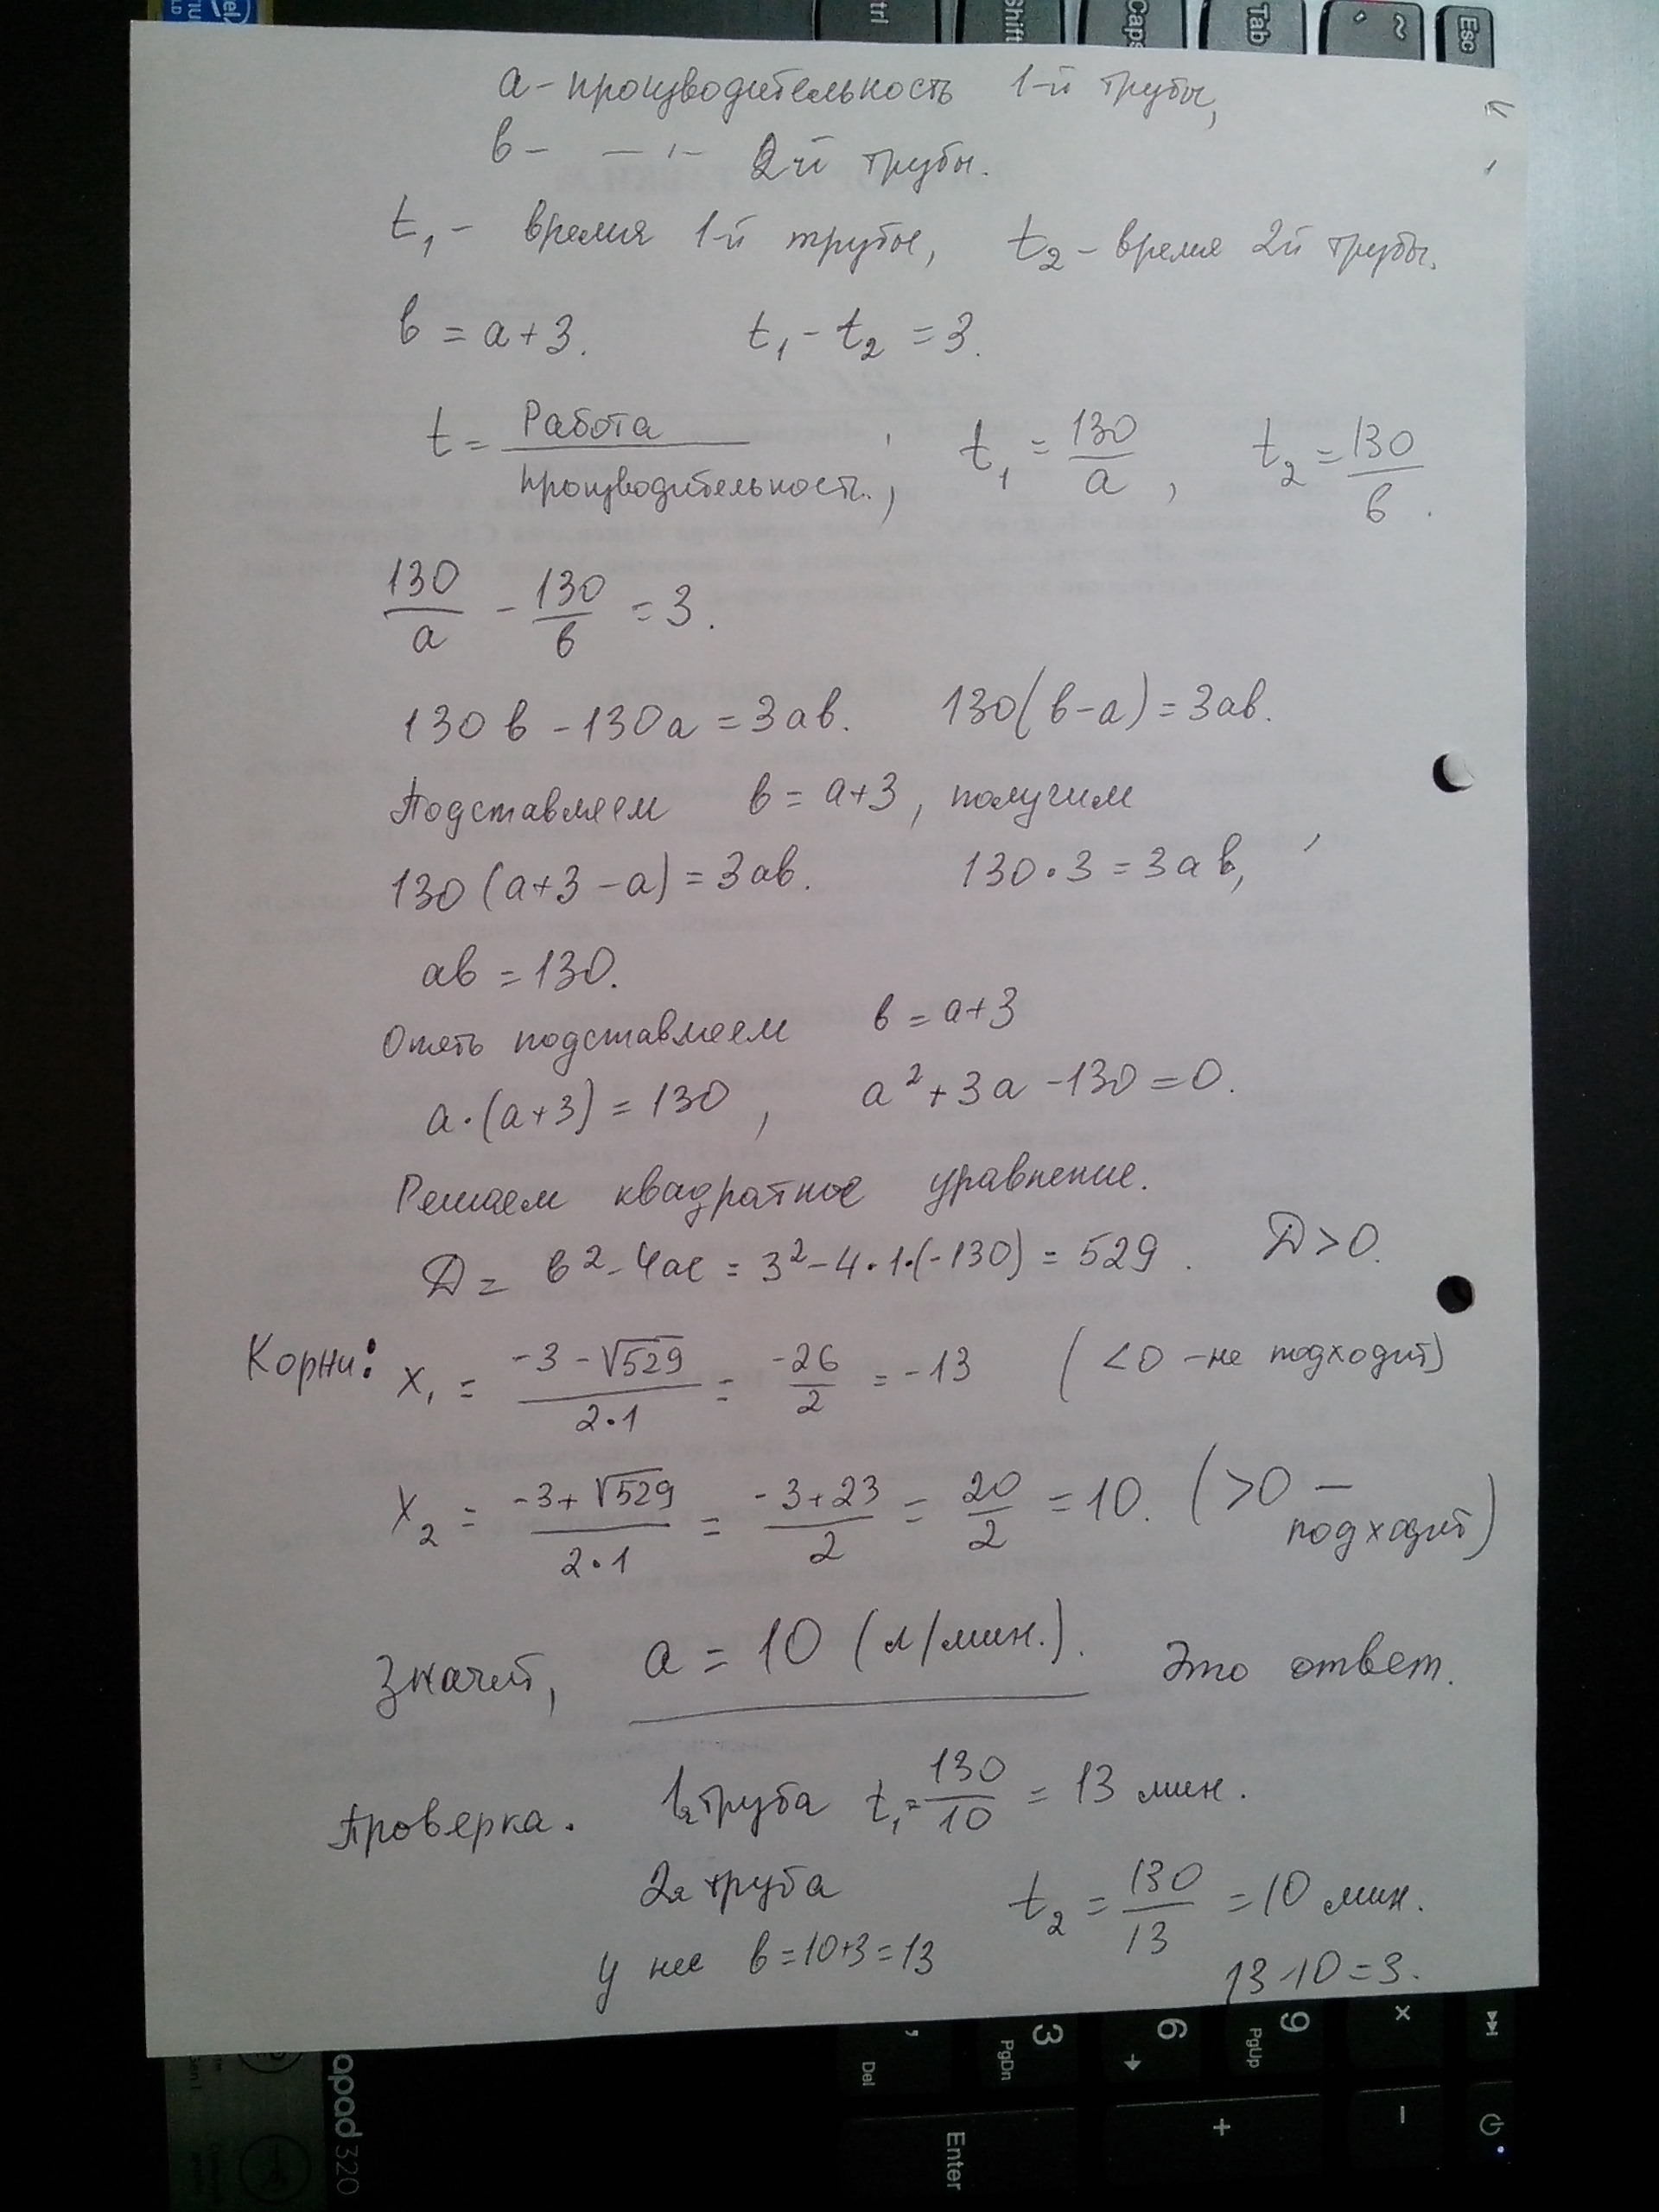 trl
Shift
Caps
Tab
~
Esc
а - производительность 1-й трубы,
в - —''— 2й трубы.
t₁ - время 1-й трубы, t₂ - время 2й трубы.
в = а+3. t₁ - t₂ = 3.
t = Работа / производительность; t₁ = 130/а, t₂ = 130/в.
130/а - 130/в = 3.
130в - 130а = 3ав. 130(в-а) = 3ав.
Подставляем в = а+3, получим
130(а+3-а) = 3ав. 130·3 = 3ав,
ав = 130.
Опять подставляем в = а+3
а·(а+3) = 130, а² + 3а - 130 = 0.
Решаем квадратное уравнение.
Д = в² - 4ас = 3² - 4·1·(-130) = 529. Д > 0.
Корни: х₁ = (-3 - √529)/(2·1) = -26/2 = -13 (<0 - не подходит)
х₂ = (-3 + √529)/(2·1) = (-3+23)/2 = 20/2 = 10. (>0 — подходит)
Значит, а = 10 (л/мин.). Это ответ.
Проверка. 1я труба t₁ = 130/10 = 13 мин.
2я труба t₂ = 130/13 = 10 мин.
у нее в = 10+3 = 13 13-10 = 3.
, Del
3 PgDn
6
9 PgUp
×
Enter
+
−
apad 320